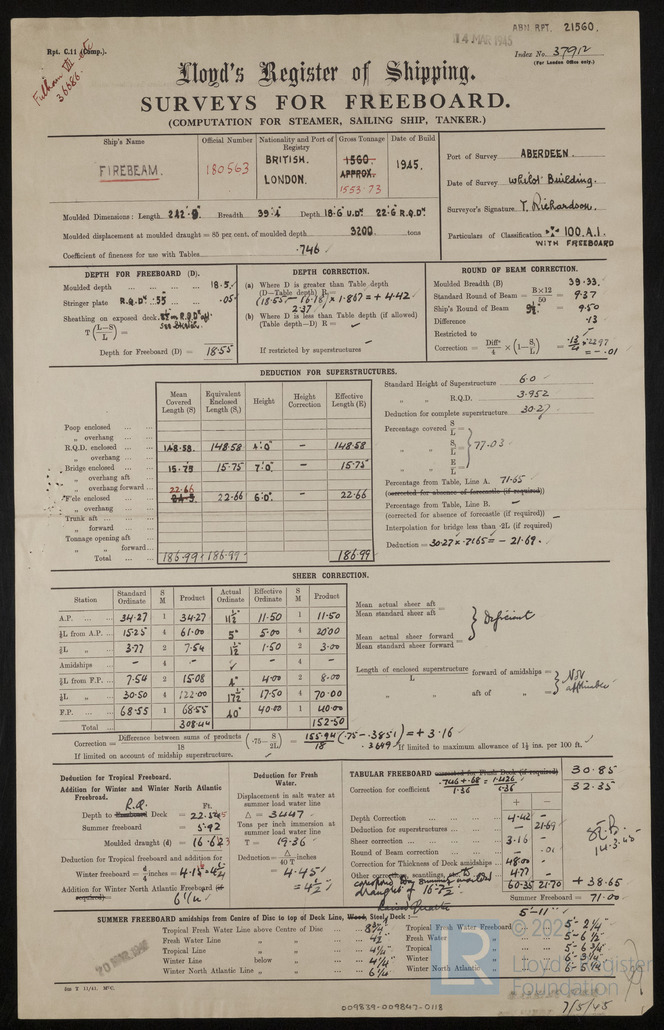 ABN RPT. 21560.
14 MAR 1945
Rpt. C.11 (Comp.).
Index No. 37912
(For London Office only.)
Lloyd's Register of Shipping.
SURVEYS FOR FREEBOARD.
(COMPUTATION FOR STEAMER, SAILING SHIP, TANKER.)
Ship's Name
Official Number
Nationality and Port of Registry
Gross Tonnage
Date of Build
FIREBEAM.
180563
BRITISH.
LONDON.
1560.
APPROX.
1553.73
1945.
Port of Survey ABERDEEN.
Date of Survey Whilst Building.
Surveyor's Signature T. Richardson.
Particulars of Classification ✠ 100.A.1.
WITH FREEBOARD
Moulded Dimensions: Length 242.9 Breadth 39.4 Depth 18.6 U.Dk 22.6 R.Q.Dk
Moulded displacement at moulded draught = 85 per cent. of moulded depth 3200 tons
Coefficient of fineness for use with Tables .746
DEPTH FOR FREEBOARD (D).
Moulded depth 18.5
Stringer plate R.Q.Dk .55 .05
Sheathing on exposed deck
T (L—S/L) =
Depth for Freeboard (D) = 18.55
DEPTH CORRECTION.
(a) Where D is greater than Table depth
(D—Table depth) R =
(18.55 – 16.18) × 1.867 = + 4.42
2.37
(b) Where D is less than Table depth (if allowed)
(Table depth—D) R =
If restricted by superstructures
ROUND OF BEAM CORRECTION.
Moulded Breadth (B) 39.33
Standard Round of Beam = B×12/50 = 9.37
Ship's Round of Beam = 9.50
Difference .13
Restricted to
Correction = Diffce/4 × (1—S1/L) = .13/4 × .2297
= – .01
DEDUCTION FOR SUPERSTRUCTURES.
Mean Covered Length (S)
Equivalent Enclosed Length (S1)
Height
Height Correction
Effective Length (E)
Poop enclosed
„ overhang
R.Q.D. enclosed 148.58. 148.58 4.0 – 148.58
„ overhang
Bridge enclosed 15.75 15.75 7.0 – 15.75
„ overhang aft
„ overhang forward 22.66
F'cle enclosed 22.66 6.0 – 22.66
„ overhang
Trunk aft
„ forward
Tonnage opening aft
„ „ forward
Total 186.99 186.99 186.99
Standard Height of Superstructure 6.0
„ „ R.Q.D. 3.952
Deduction for complete superstructure 30.27
Percentage covered S/L =
„ „ S1/L = 77.03
„ „ E/L =
Percentage from Table, Line A. 71.65
(corrected for absence of forecastle (if required))
Percentage from Table, Line B. –
(corrected for absence of forecastle (if required)) –
Interpolation for bridge less than .2L (if required)
Deduction = 30.27 × .7165 = – 21.69.
SHEER CORRECTION.
Station
Standard Ordinate
S M
Product
Actual Ordinate
Effective Ordinate
S M
Product
A.P. 34.27 1 34.27 11½" 11.50 1 11.50
⅙L from A.P. 15.25 4 61.00 5" 5.00 4 20.00
⅓L „ 3.77 2 7.54 1½" 1.50 2 3.00
Amidships – 4 – – 4 –
⅓L from F.P. 7.54 2 15.08 4" 4.00 2 8.00
⅙L „ 30.50 4 122.00 17½" 17.50 4 70.00
F.P. 68.55 1 68.55 40" 40.00 1 40.00
Total 308.44 152.50
Mean actual sheer aft
Mean standard sheer aft =
Mean actual sheer forward
Mean standard sheer forward =
Deficient
Length of enclosed superstructure / L forward of amidships =
„ „ aft of „ =
Not applicable
Correction = Difference between sums of products / 18 (.75— S/2L) = 155.94/18 (.75 – .3851) = + 3.16
.3649
If limited on account of midship superstructure.
If limited to maximum allowance of 1½ ins. per 100 ft.
Deduction for Tropical Freeboard.
Addition for Winter and Winter North Atlantic Freeboard.
Ft.
R.Q.
Depth to Freeboard Deck = 22.545
Summer freeboard = 5.92
Moulded draught (d) = 16.623
Deduction for Tropical freeboard and addition for
Winter freeboard = d/4 inches =
Addition for Winter North Atlantic Freeboard (if required) = 6¼
Deduction for Fresh Water.
Displacement in salt water at summer load water line
△ = 3447
Tons per inch immersion at summer load water line
T = 19.36
Deduction = △/40 T inches
= 4.45
= 4½
TABULAR FREEBOARD corrected for Flush Deck (if required) 30.85
Correction for coefficient .746 + .68 / 1.36 = 1.426 / 1.36 32.35
+ –
Depth Correction 4.42 –
Deduction for superstructures – 21.69
Sheer correction 3.16 –
Round of Beam correction – .01
Correction for Thickness of Deck amidships 48.00
Other corrections, scantlings, 4.77
60.35 21.70 + 38.65
Summer Freeboard = 71.00
14.3.45
SUMMER FREEBOARD amidships from Centre of Disc to top of Deck Line, Wood, Steel, Deck :— 5'-11"
Tropical Fresh Water Line above Centre of Disc 8¾"
Fresh Water Line „ „ 4½
Tropical Line „ „ 4¼"
Winter Line below „ 4¼"
Winter North Atlantic Line „ „ 6¼
Tropical Fresh Water Freeboard 5'-2¼"
Fresh Water „ 5'-6½"
Tropical „ 5'-6¾"
Winter „ 6'-3¼"
Winter North Atlantic „ 6'-5¼"
20 MAR 1945
7/5/45
009839-009847-0118
LR
© 202
Lloyd's Register
Foundation